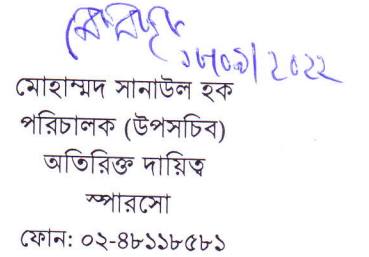 মোহাম্মদ সানাউল হক
পরিচালক (উপসচিব)
অতিরিক্ত দায়িত্ব
স্পারসো
ফোন: ০২-৪৮১১৮৫৮১